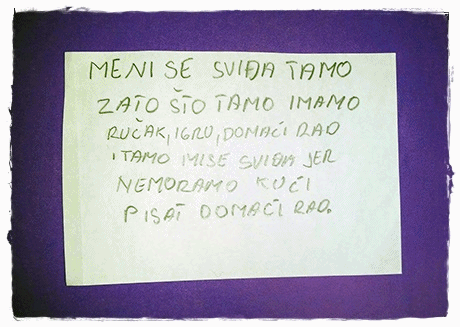 MENI SE SVIĐA TAMO
ZATO ŠTO TAMO IMAMO
RUČAK, IGRU, DOMAĆI RAD
I TAMO MISE SVIĐA JER
NEMORAMO KUĆI
PISAT DOMAĆI RAD.